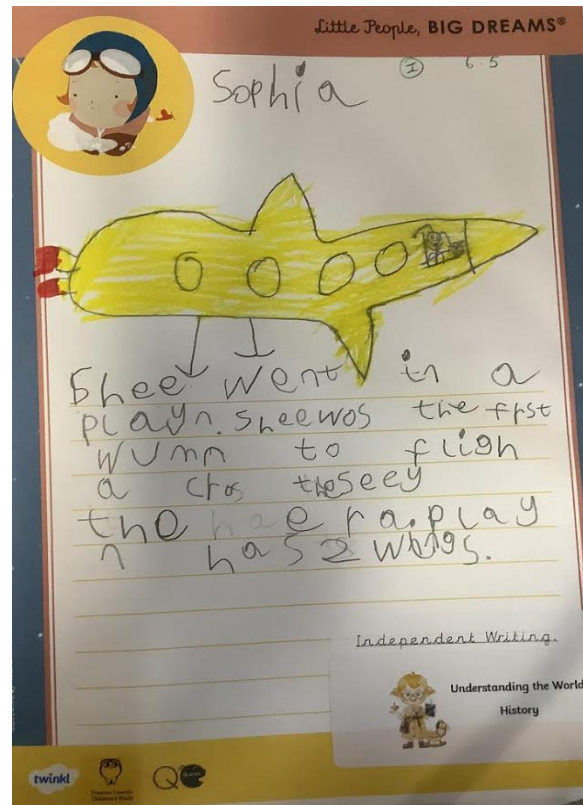 Little People, BIG DREAMS®
I 6.5
Sophia
Shee went in a
playn. sheewos the frst
wumn to fligh
a cros theseey
the haerа.play
n has 2 wings.
Independent Writing.
Understanding the World
History
twinkl